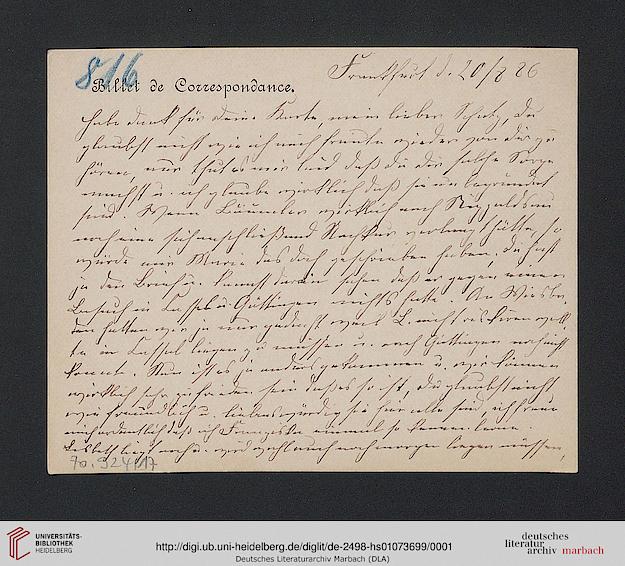 816
Billet de Correspondance.
Frankfurt d. 20/8 86
Habe Dank für Deine Karte, mein lieber Schatz, Du
glaubst nicht wie ich mich freute wieder von Dir zu
hören, nur thut es mir leid daß Du Dir solche Sorge
machst u. ich glaube wirklich daß sie unbegründet
sind. Wenn wirklich nach
noch eine Nachkur verlangt hätte, so
würde mir Marie das doch geschrieben haben, Du hast
ja den Brief u. kannst darin sehen daß er gegen einen
Besuch in Cassel u. Göttingen nichts hatte. An Wiesba-
den hatten wir ja nur gedacht weil L. nicht riskiren woll-
te in Cassel liegen zu müssen u. nach Göttingen
kommt. Nun ist es ja anders gekommen u. wir können
wirklich sehr zufrieden sein daß es so ist, Du glaubst nicht
wie freundlich u. liebenswürdig sie hier alle sind, ich freue
mich ordentlich daß ich Franziska einmal so kennen lerne.
Lisbeth liegt noch u. wird wohl auch noch morgen liegen müssen,
70.924/17
UNIVERSITÄTS-
BIBLIOTHEK
HEIDELBERG
http://digi.ub.uni-heidelberg.de/diglit/de-2498-hs01073699/0001
Deutsches Literaturarchiv Marbach (DLA)
deutsches
literatur
archiv marbach